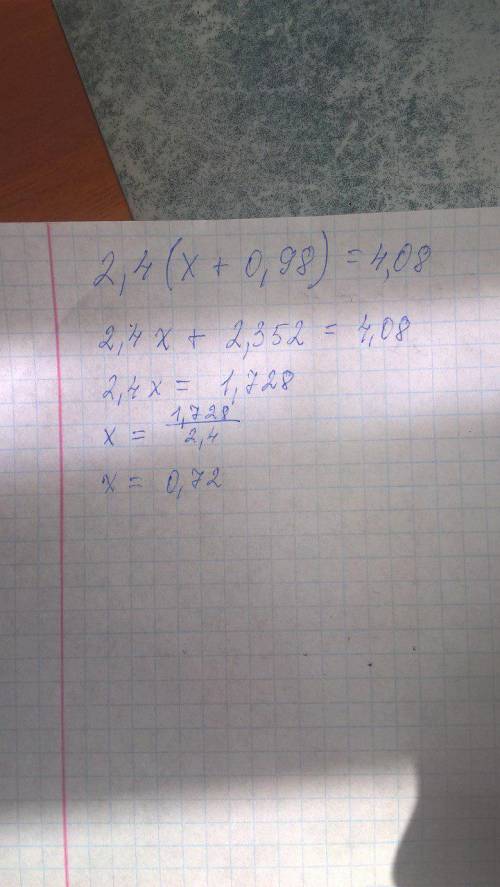 2,4(x + 0,98) = 4,08
2,4x + 2,352 = 4,08
2,4x = 1,728
x = 1,728/2,4
x = 0,72